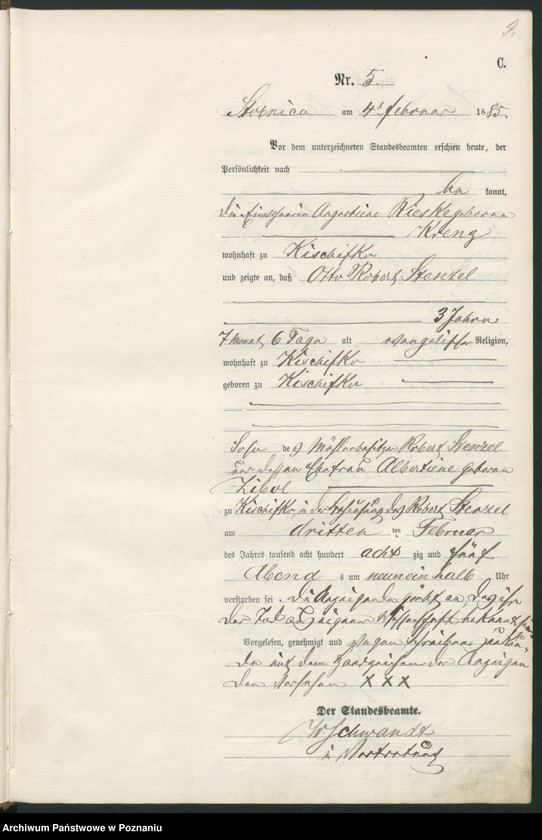 9.
C.
Nr. 5.
Stoinica am 4t Februar 1885.
Vor dem unterzeichneten Standesbeamten erschien heute, der
Persönlichkeit nach
be kannt,
die Augustine Rieske geborene
Krenz
wohnhaft zu Kischefke
und zeigte an, daß Otto Robert Stenzel
3 Jahre
7 Monat, 6 Tage alt evangelischer Religion,
wohnhaft zu Kischefke
geboren zu Kischefke
Sohn des Robert Stenzel
und dessen Ehefrau Albertiene geborene
zu Kischefke, in der Behausung des Robert Stenzel
am dritten ten Februar
des Jahres tausend acht hundert acht zig und fünf
Abend s um neuneinhalb Uhr
verstorben sei. Die Anzeigende
der Tod aus eigener Wissenschaft bekannt sei
Vorgelesen, genehmigt und wegen
mit dem Handzeichen der Anzeigen
den versehen X X X
Der Standesbeamte.
W. Schwandt
in Vertretung
Archiwum Państwowe w Poznaniu